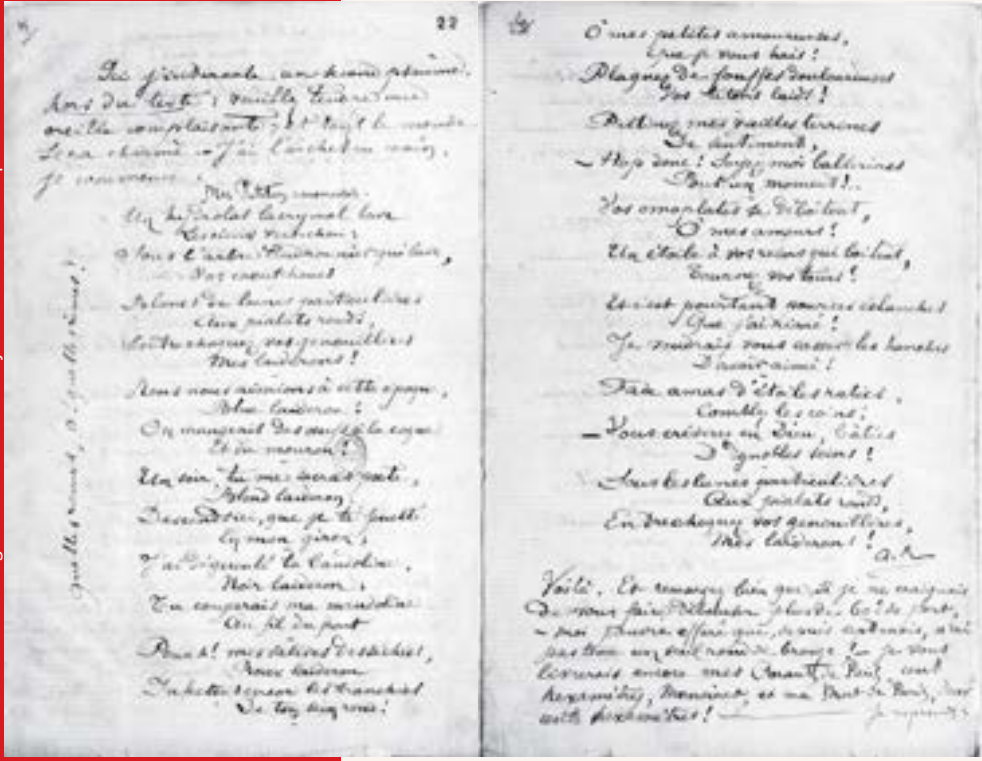 22
Ici j'intercale un second psaume,
hors du texte : veuillez tendre une
oreille complaisante, — et tout le monde
sera charmé. — J'ai l'archet en main,
je commence :
Mes Petites amoureuses.
Un hydrolat lacrymal lave
Les cieux vert-chou :
Sous l'arbre tendronnier qui bave,
Vos caoutchoucs
Blancs de lunes particulières
Aux pialats ronds,
Entrechoquez vos genouillères
Mes laiderons !
Nous nous aimions à cette époque,
Bleu laideron !
On mangeait des œufs à la coque
Et du mouron !
Un soir, tu me sacras poète,
Blond laideron :
Descends ici, que je te fouette
En mon giron ;
J'ai dégueulé ta bandoline,
Noir laideron ;
Tu couperais ma mandoline
Au fil du front
Pouah ! mes salives desséchées,
Roux laideron
Infectent encor les tranchées
De ton sein rond !
quelles rimes, ô quelles rimes !
Ô mes petites amoureuses,
Que je vous hais !
Plaquez de fouffes douloureuses
Vos tétons laids !
Piétinez mes vieilles terrines
De sentiment,
— Hop donc ! Soyez-moi ballerines
Pour un moment !..
Vos omoplates se déboîtent,
Ô mes amours !
Une étoile à vos reins qui boitent,
Tournez vos tours !
Et c'est pourtant pour ces éclanches
Que j'ai rimé !
Je voudrais vous casser les hanches
D'avoir aimé !
Fade amas d'étoiles ratées,
Comblez les coins ;
— Vous crèverez en Dieu, bâtées
D'ignobles soins !
Sous les lunes particulières
Aux pialats ronds,
Entrechoquez vos genouillères,
Mes laiderons !
A.R.
Voilà. Et remarquez bien que, si je ne craignais
de vous faire débourser plus de 60 c. de port,
— moi pauvre effaré qui, depuis sept mois, n'ai
pas tenu un seul rond de bronze ! — je vous
livrerais encore mes Amants de Paris, cent
hexamètres, Monsieur, et ma Mort de Paris, deux
cents hexamètres ! — Je reprends :